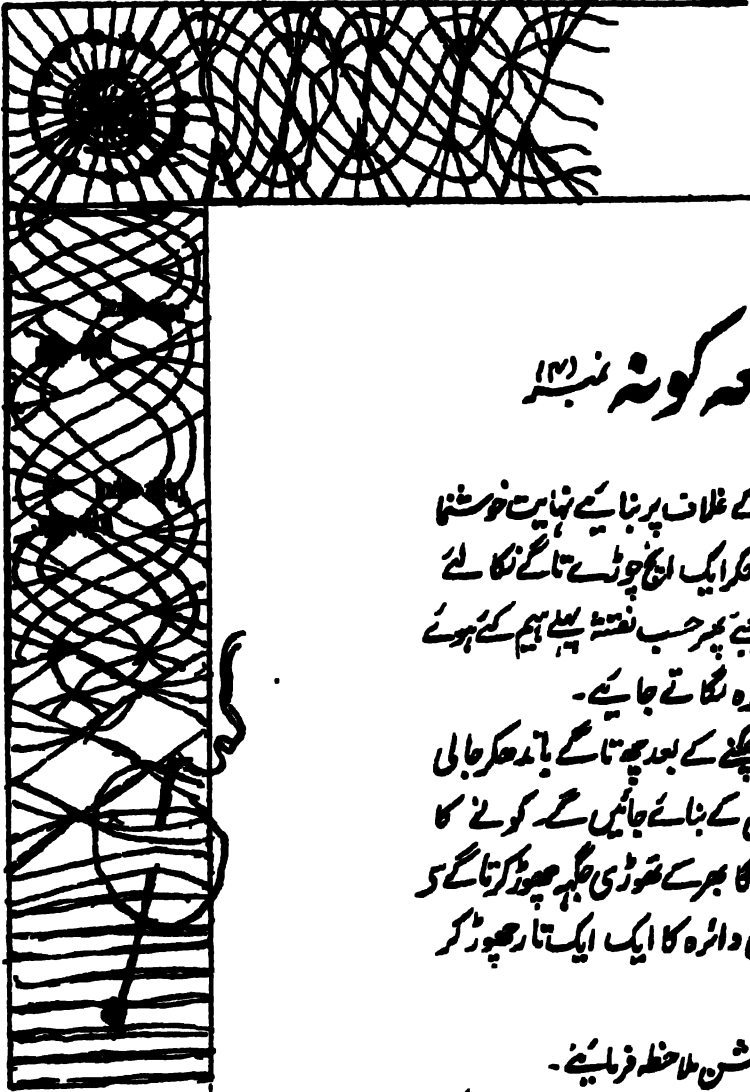 کونہ نمبر (۴)
کے غلاف پر بنائیے نہایت خوشنما
کر ایک انچ چوڑے تاگے نکالئے
پھر حسب نقشہ پہلے ہیم کئے ہوئے
لگاتے جایئے۔
چکنے کے بعد چھ تاگے باندھکر جالی
کے بنائے جائیں گے۔ کونے کا
بھر کے تھوڑی جگہ چھوڑ کر تاگے
دائرہ کا ایک ایک تار چھوڑ کر
ملاحظہ فرمایئے۔